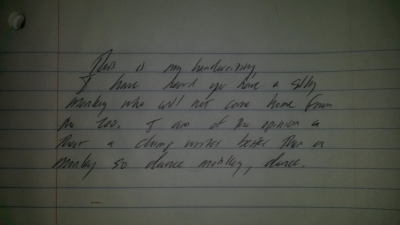 This is my handwriting
I have heard you have a silly
monkey who will not come home from
the zoo. I am of the opinion
that a chimp writes better than
monkey so dance monkey, dance.